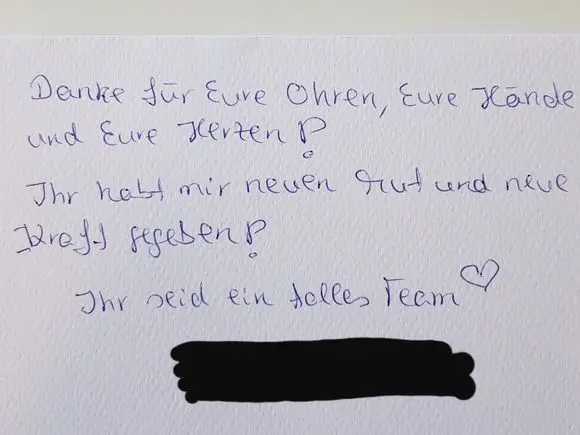 Danke für Eure Ohren, Eure Hände
und Eure Herzen!
Ihr habt mir neuen Mut und neue
Kraft gegeben!
Ihr seid ein tolles Team ♡